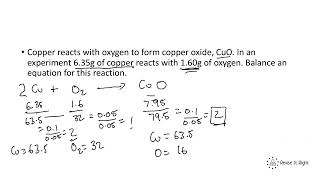 • Copper reacts with oxygen to form copper oxide, CuO. In an
experiment 6.35g of copper reacts with 1.60g of oxygen. Balance an
equation for this reaction.
2 Cu + O₂ → CuO
6.35/63.5 1.6/32 7.95/79.5
= 0.1/0.05 = 2 = 0.05/0.05 = 1 = 0.1/0.05 = 2
Cu = 63.5 O₂ = 32 Cu = 63.5
O = 16
Revise It Right